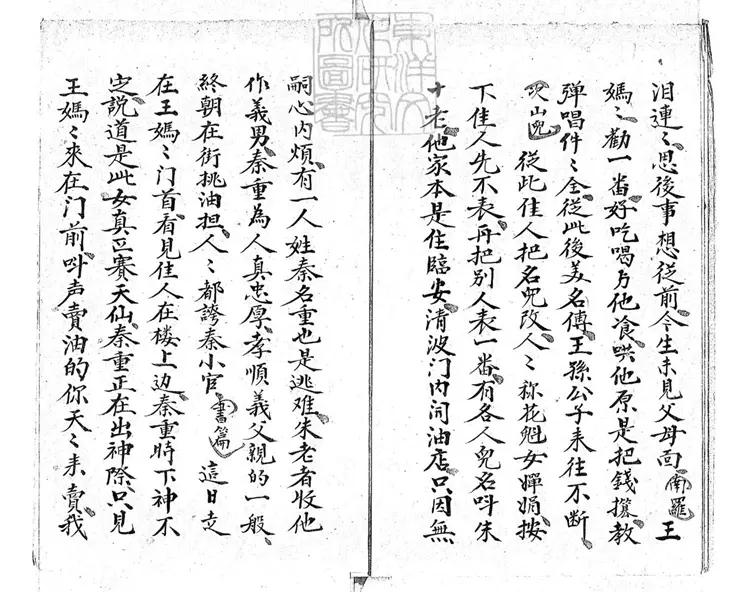 泪連〻思後事想從前今生未見父母面南羅王
媽〻勸一番好吃喝与他飡哄他原是把錢攥教
彈唱件〻全從此後美名傳王孫公子來往不断
從此佳人把名兒改人〻称花魁女嬋娟按
下佳人先不表再把別人表一番有各人兒名叫朱
十老他家本是住臨安清波门内闬油店只因無
嗣心内煩有一人姓秦名重也是逃难朱老者收他
作義男秦重為人真忠厚孝順義父親的一般
終朝在街挑油担人〻都誇秦小官書篇這日走
在王媽〻门首看見佳人在楼上边秦重時下神不
定說道是此女真正賽天仙秦重正在出神際只見
王媽〻來在门前叫声賣油的你天〻来賣我
東洋文化研究所圖書